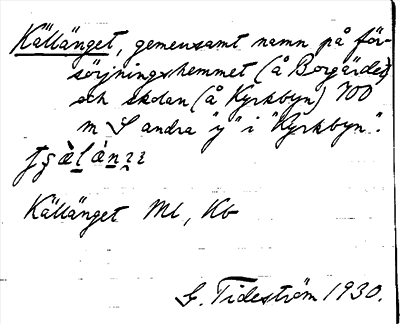 Källänget, gemensamt namn på för-
sörjningshemmet (å Borgärdet)
och skolan (å Kyrkbyn) 700
m S andra "y" i "Kyrkbyn".
Källänget Ml, Kb
G. Tideström 1930.